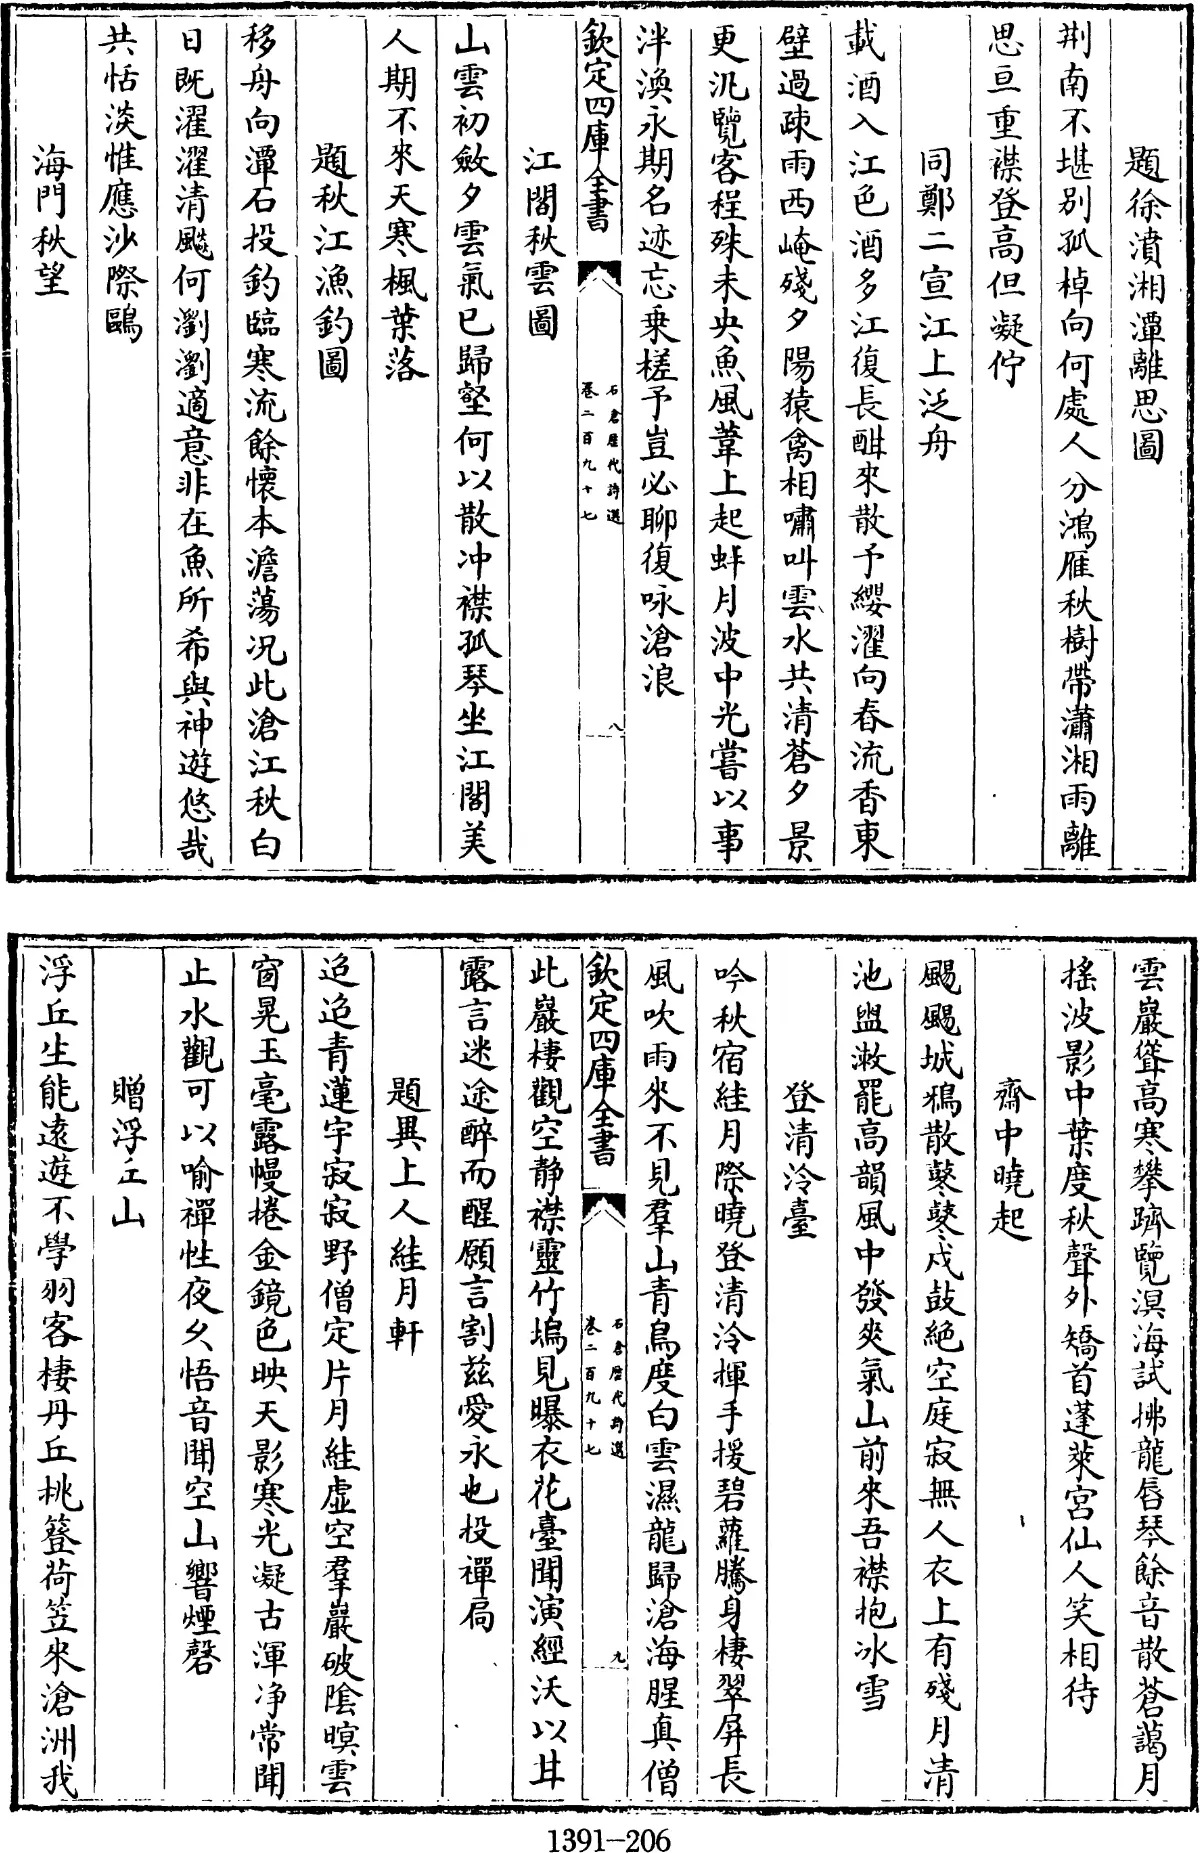 題徐濆湘潭離思圖
荆南不堪別孤棹向何處人分鴻雁秋樹帶瀟湘雨離
思亘重襟登高但凝佇
同鄭二宣江上泛舟
載酒入江色酒多江復長酣來散予纓濯向春流香東
壁過疎雨西崦殘夕陽猿禽相嘯叫雲水共清蒼夕景
更汎覽客程殊未央魚風葦上起蚌月波中光嘗以事
泮渙永期名迹忘乗槎予豈必聊復咏滄浪
欽定四庫全書
石倉歴代詩選
卷二百九十七
八
江閣秋雲圖
山雲初斂夕雲氣已歸壑何以散冲襟孤琴坐江閣美
人期不來天寒楓葉落
題秋江漁釣圖
移舟向潭石投釣臨寒流餘懷本澹蕩况此滄江秋白
日既濯濯清飈何瀏瀏適意非在魚所希與神遊悠哉
共恬淡惟應沙際鷗
海門秋望
雲巖聳高寒攀躋覽溟海試拂龍唇琴餘音散蒼藹月
摇波影中葉度秋聲外矯首蓬萊宮仙人笑相待
齋中曉起
颺颺城鴉散鼕鼕戍鼓絶空庭寂無人衣上有殘月清
池盥漱罷高韻風中發爽氣山前來吾襟抱冰雪
登清泠臺
吟秋宿絓月際曉登清泠揮手援碧蘿騰身棲翠屏長
風吹雨來不見羣山青鳥度白雲濕龍歸滄海腥真僧
欽定四庫全書
石倉歴代詩選
卷二百九十七
九
此巖棲觀空静襟靈竹塢見曝衣花臺聞演經沃以甘
露言迷途醉而醒願言割兹愛永也投禪扃
題異上人絓月軒
迢迢青蓮宇寂寂野僧定片月絓虚空羣巖破陰暝雲
窗晃玉毫露幔捲金鏡色映天影寒光凝古渾净常聞
止水觀可以喻禪性夜久悟音聞空山響煙磬
贈浮丘山
浮丘生能遠遊不學羽客棲丹丘桃簦荷笠來滄洲我
1391—206